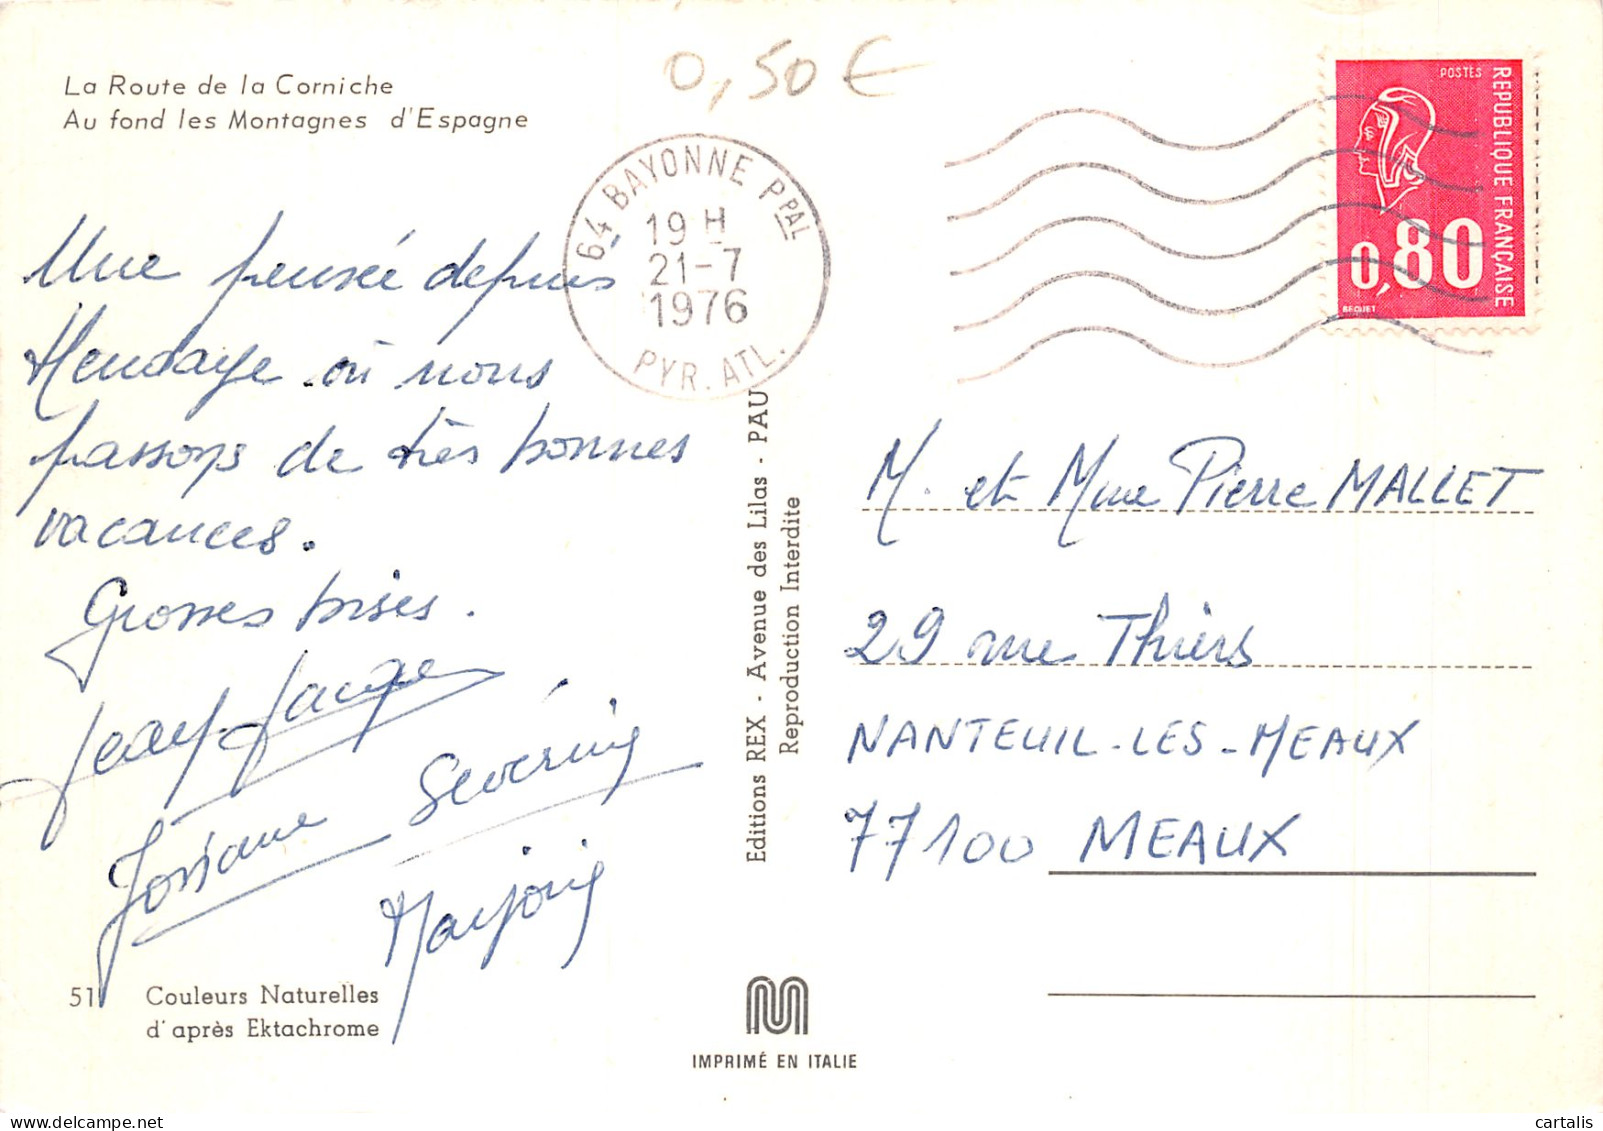 La Route de la Corniche
Au fond les Montagnes d'Espagne
0,50 €
64 BAYONNE PPAL
19 H
21-7
1976
PYR. ATL.
POSTES
REPUBLIQUE FRANÇAISE
0,80
BEQUET
Une pensée depuis
Hendaye où nous
passons de très bonnes
vacances.
Grosses bises.
Jean-Jacques
Josiane Séverine
Marjorie
Editions REX - Avenue des Lilas - PAU
Reproduction Interdite
M. et Mme Pierre MALLET
29 rue Thiers
NANTEUIL-LES-MEAUX
77100 MEAUX
51 Couleurs Naturelles
d'après Ektachrome
IMPRIMÉ EN ITALIE
cartalis
www.delcampe.net